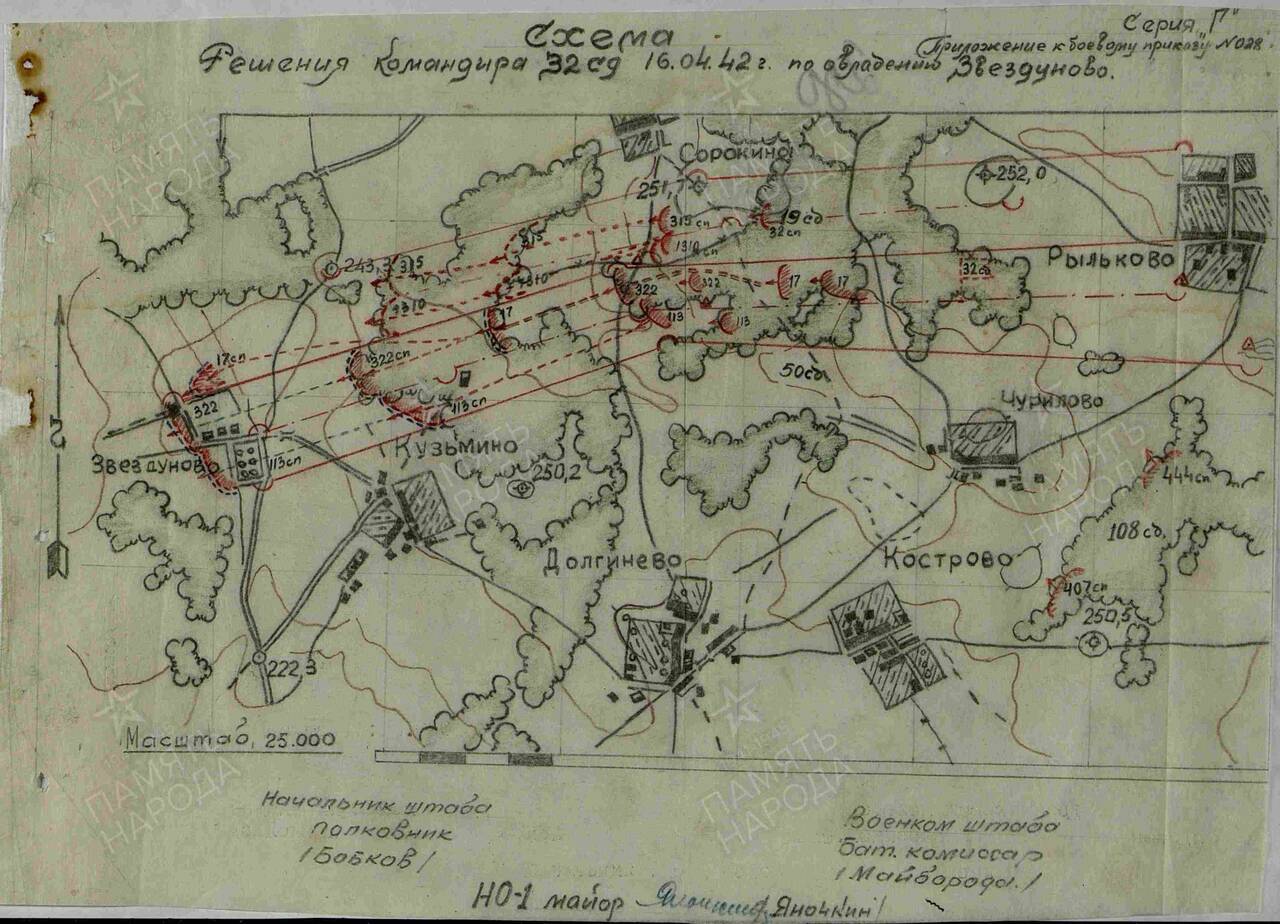 Серия „Г"
Схема
(Приложение к боевому приказу №028
Решения командира 32 сд 16.04.42 г. по овладению Звездуново.
Сорокино
251,7
252,0
315 сп
19 сд
32 сп
1310 сп
315
243,3
315
Рыльково
32 сд
1310
322
322
17
17
1310
17
113
113
17 сп
322 сп
50 сд
322
113 сп
Чурилово
Кузьмино
Звездуново
113 сп
250,2
444 сп
108 сд.
Долгинево
Кострово
407 сп
250,5
222,3
С
Масштаб 25.000
Начальник штаба
полковник
/Бобков/
Военком штаба
Бат. комиссар
/Майборода./
НО-1 майор Яночкин/
ПАМЯТЬ НАРОДА
ПАМЯТЬ НАРОДА
ПАМЯТЬ НАРОДА
ПАМЯТЬ НАРОДА
ПАМЯТЬ НАРОДА
ПАМЯТЬ НАРОДА